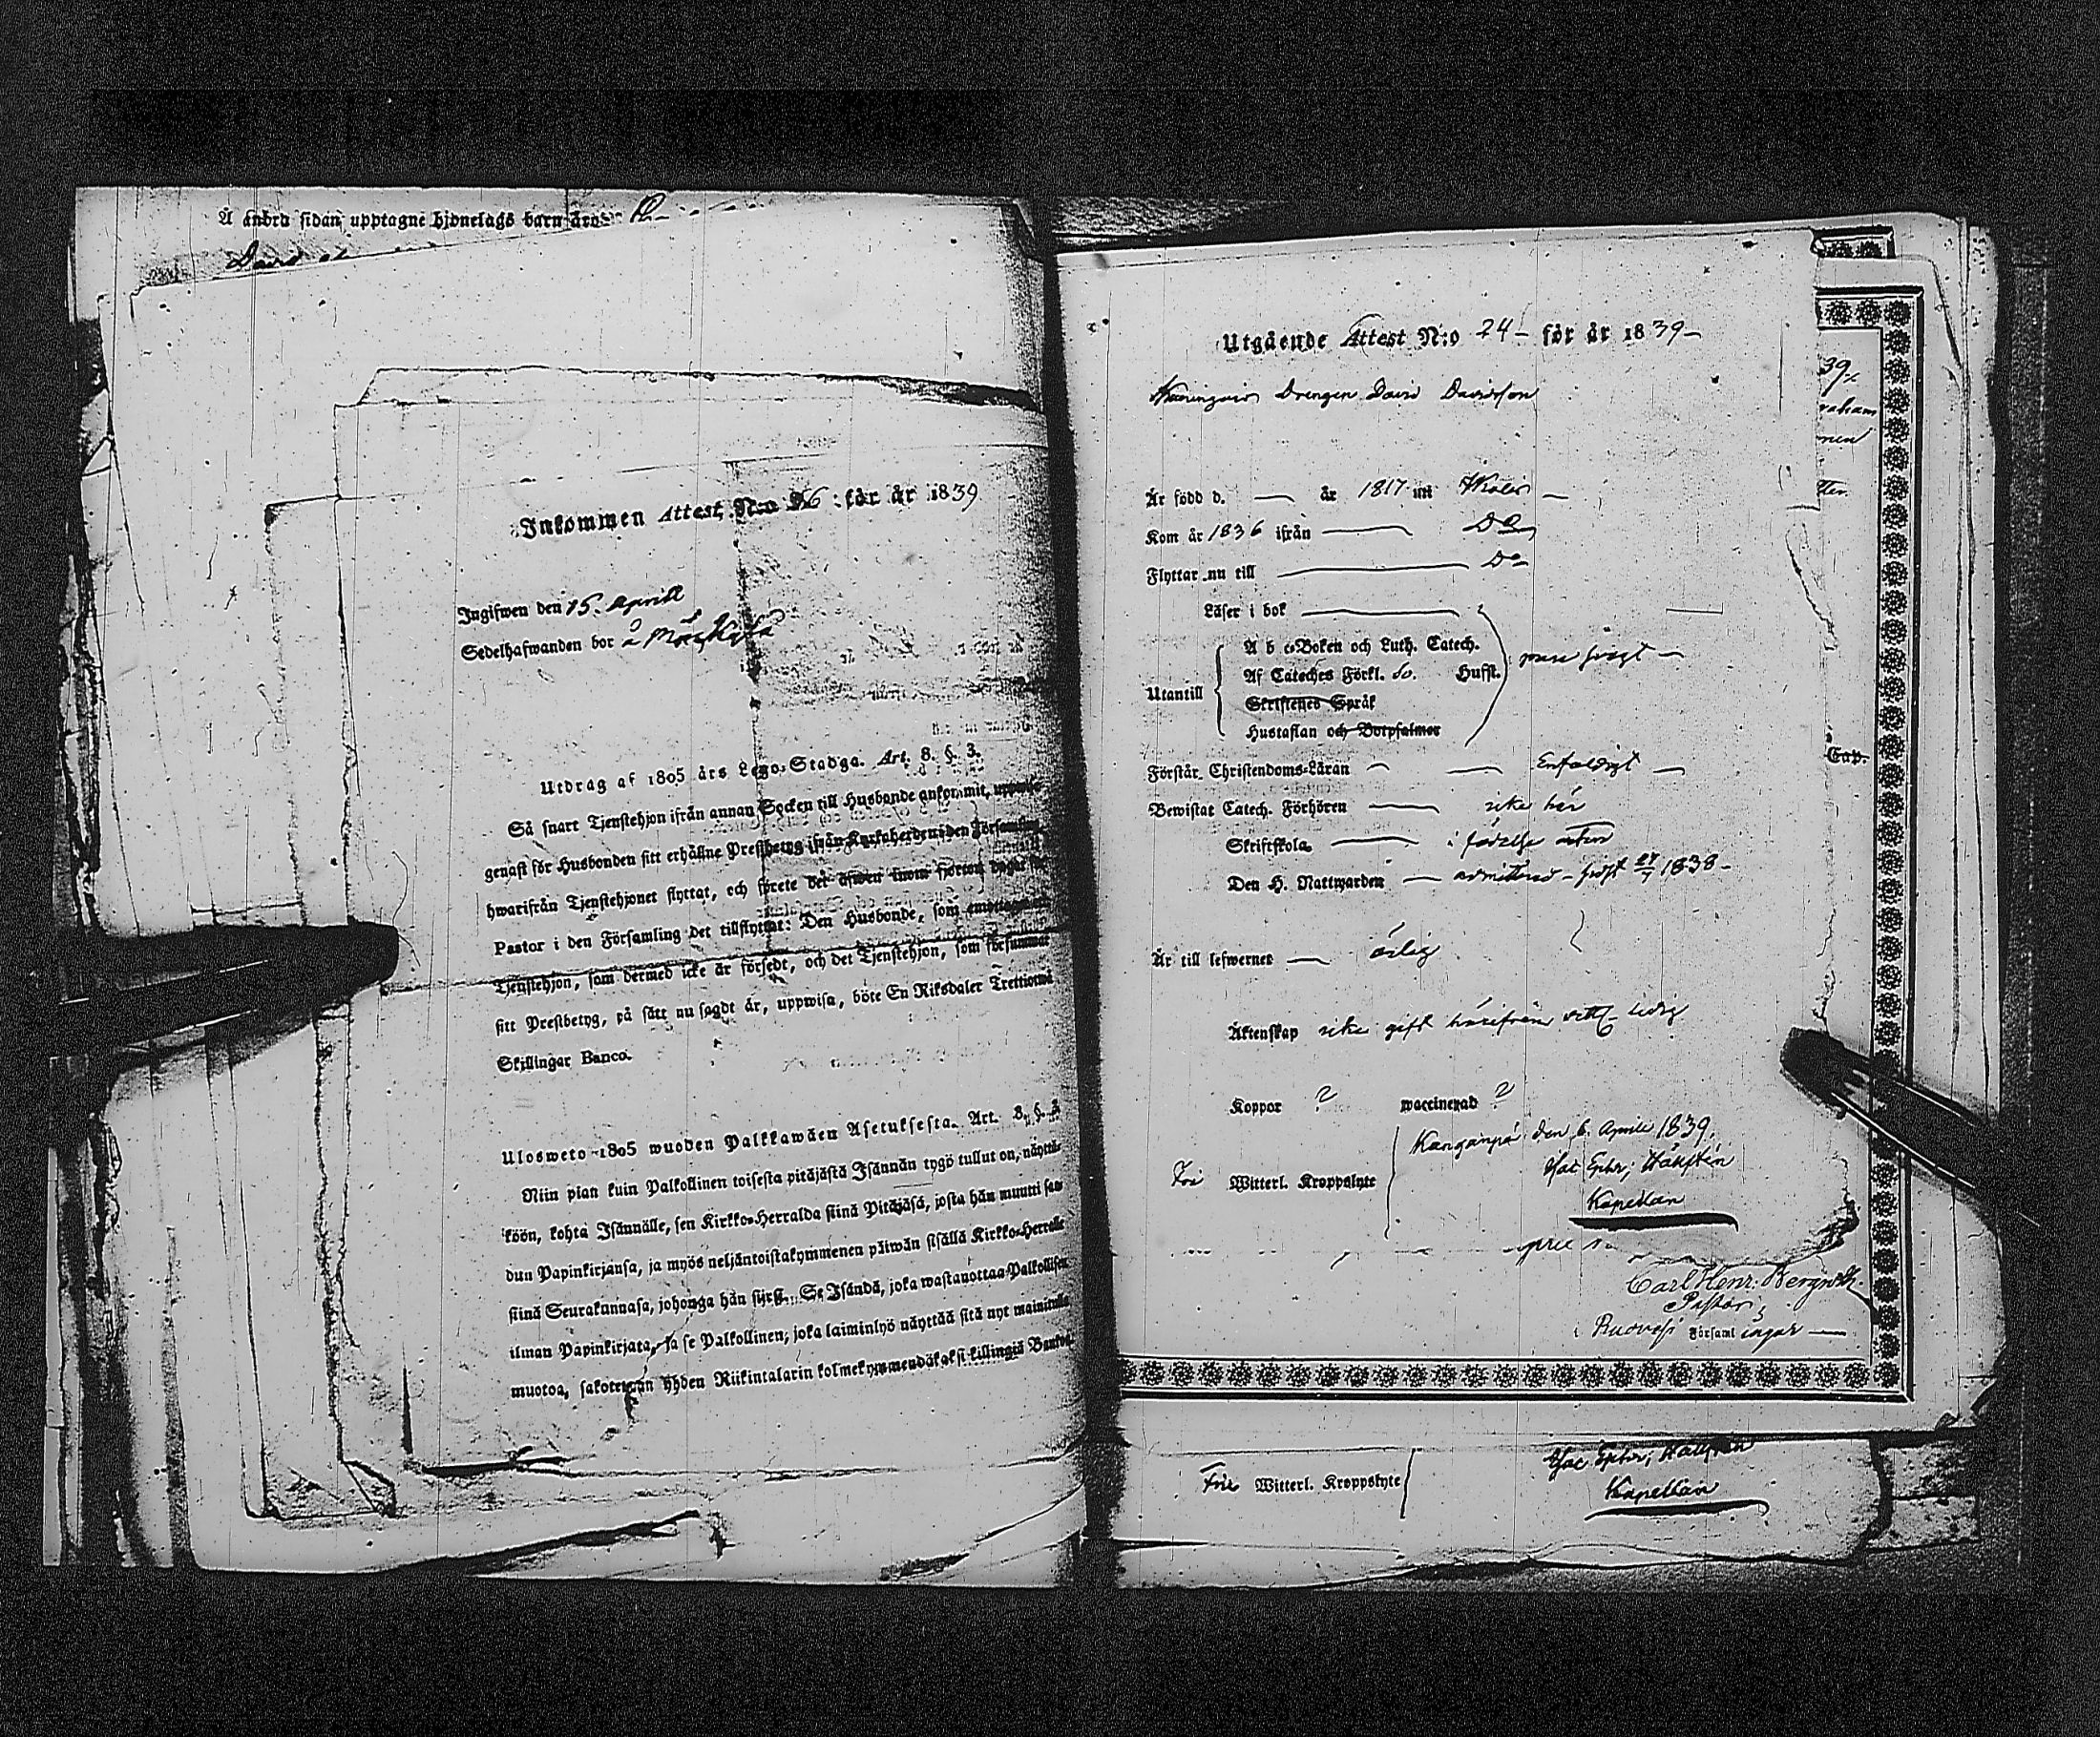 Å andra sidan upptagne hjonelags barn äro
David
Inkommen Attest N:o 26 för år 1839
Ingifwen den 15. Aprill
Sedelhafwanden bor å
Utdrag af 1805 års Lego-Stadga. Art. 8. §. 3.
Så snart Tjenstehjon ifrån annan Socken till Husbonde ankommit,
genast för Husbonden sitt erhållne Prestbetyg ifrån Kyrkoherden i den Församling,
hwarifrån Tjenstehjonet flyttat, och förete det äfwen inom fjorton dagar för
Pastor i den Församling det tillflyttat: Den Husbonde, som emottager ett
Tjenstehjon, som dermed icke är försedt, och det Tjenstehjon, som försummar
sitt Prestbetyg, på sätt nu sagdt är, uppwisa, böte En Riksdaler Trettiotwå
Skillingar Banco.
Ulosweto 1805 wuoden Palkkawäen Asetuksesta. Art. 8. §. 3.
Niin pian kuin Palkollinen toisesta pitäjästä Isännän tygö tullut on, näyttä-
köön, kohta Isännälle, sen Kirkko-Herralda siinä Pitäjäsä, josta hän muutti saa-
dun Papinkirjansa, ja myös neljäntoistakymmenen päiwän sisällä Kirkko-Herralle
siinä Seurakunnasa, johonga hän siirsi. Se Isändä, joka wastanottaa Palkollisen
ilman Papinkirjata, ja se Palkollinen, joka laiminlyö näyttää sitä nyt mainitulla
muotoa, sakotetaan yhden Riikintalarin kolmekymmendäkaksi killingiä Bankoa
Utgående Attest N:o 24 – för år 1839 –
Drengen David Davidson
Är född d. — år 1817 uti
Kom år 1836 ifrån — Do
Flyttar nu till — Do
Läser i bok
A b c-Boken och Luth. Catech.
Af Cateches Förkl. do. Hufst.
Utantill
Skriftenes Språk
Hustaflan och Botpsalmer
svagt —
Förstår Christendoms-Läran — Enfaldigt —
Bewistat Catech. Förhören — icke här
Skriftskola — i födelse orten
Den H. Nattwarden — admitterad – 1838 –
Är till lefwernet — ärlig
Äktenskap icke gift härifrån vitt. ledig
Koppor ? waccinerad ?
Kangaspä den 6. Aprill 1839.
Fri Witterl. Kroppslyte
Kapellan
Carl Henr: Bergroth.
Pastor
i Ruovesi Församlingar —
39
raham
nen
Cap.
Frie Witterl. Kroppslyte
Kapellan